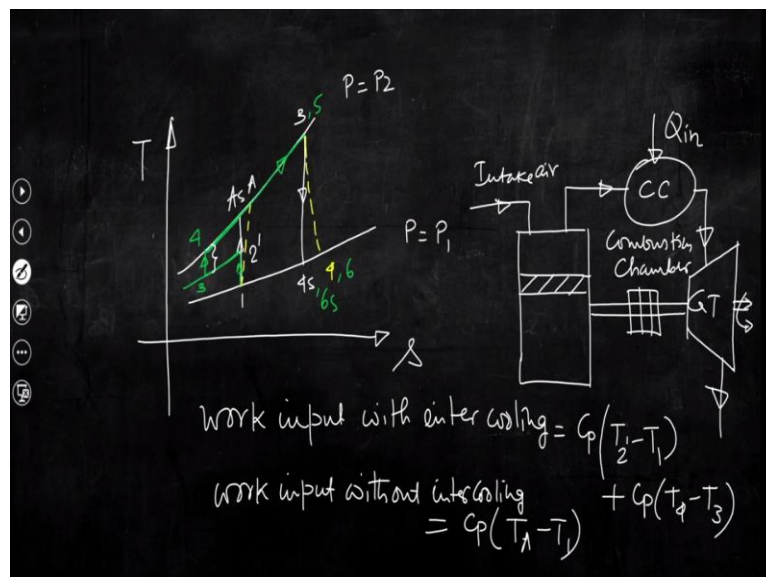 P = P2
3,5
T
As A
4
2'
4
3
1
P = P1
4s
4,6
,6s
s
Intake air
Qin
CC
Combustion
Chamber
GT
work input with inter cooling = Cp(T2'-T1)
+ Cp(T4-T3)
work input without intercooling
= Cp(TA-T1)